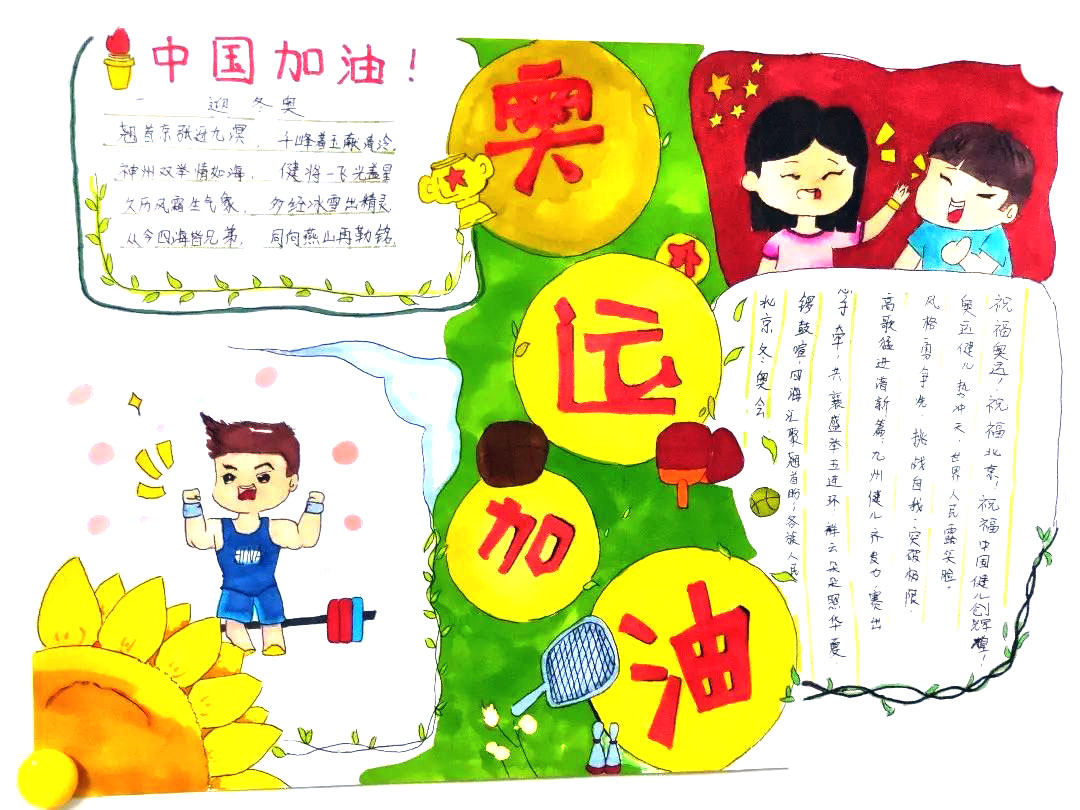 中国加油！
一 迎冬奥
翘首京张迓九溟， 千峰着玉清泠
神州双举情如海， 健将一飞光盖星
久历风霜生气象， 多经冰雪出精灵
从今四海皆兄弟， 同向燕山再勒铭
奥
运
加
油
北京冬奥会、
锣鼓喧，四海汇聚翘首盼，各族人民
手牵，共襄盛举五连环、祥云朵朵照华夏、
高歌猛进谱新篇、九州健儿齐发力、赛出
风格勇争先、挑战自我、突破极限、
奥运健儿热冲天、世界人民露笑脸、
祝福奥运！祝福北京！祝福中国健儿创辉煌！